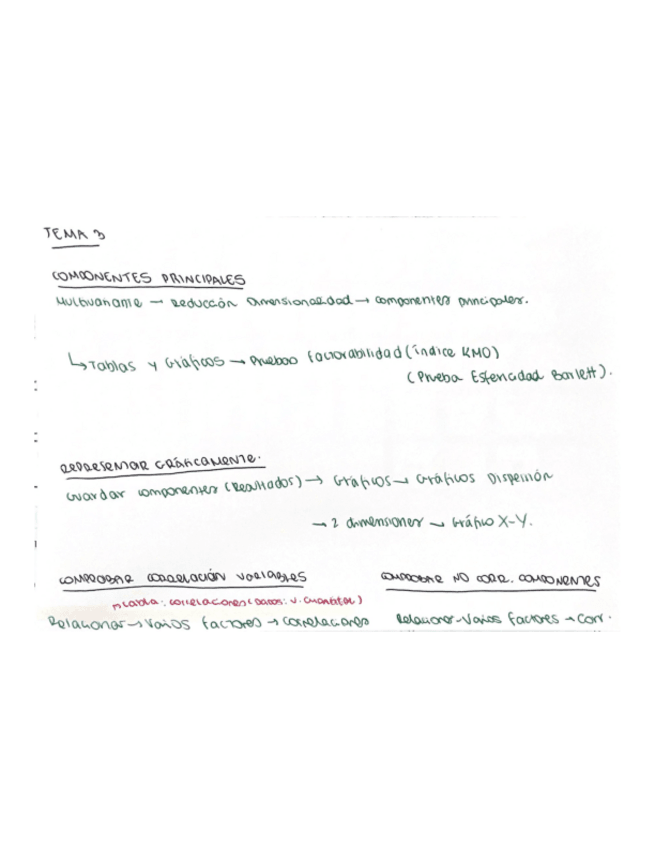 TEMA 3
COMPONENTES PRINCIPALES
Multivariante → Reducción Dimensionalidad → componentes principales.
↳ Tablas y Gráficos → Pruebas factorabilidad (índice KMO)
(Prueba Esfericidad Barlett).
REPRESENTAR GRÁFICAMENTE.
Guardar componentes (Resultados) → Gráficos → Gráficos Dispersión
→ 2 dimensiones → Gráfico X-Y.
COMPROBAR CORRELACIÓN VARIABLES
COMPROBAR NO CORR. COMPONENTES
correlaciones (Datos: v. cuantitat)
Relacionar → Varios factores → Correlaciones
Relacionar → Varios factores → Corr.